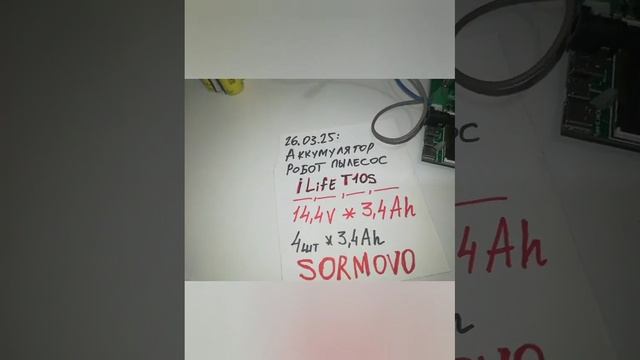 26.03.25:
Аккумулятор
робот пылесос
iLife T10s
14,4V * 3,4Ah
4шт * 3,4Ah
SORMOVO